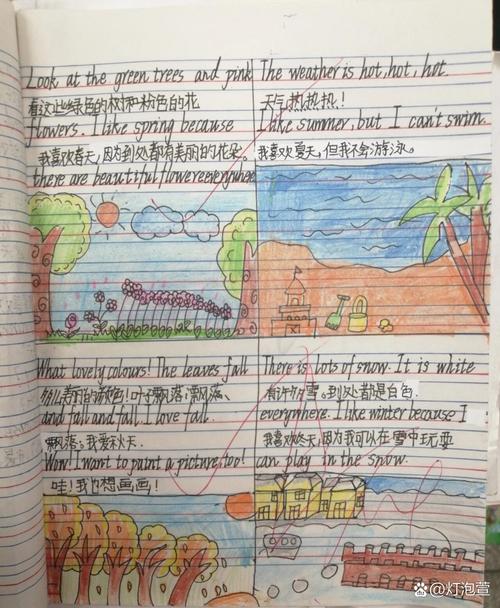 Look at the green trees and pink
看这些绿色的树和粉色的花
flowers. I like spring because
我喜欢春天,因为到处都有美丽的花朵。
there are beautiful flowers everywhere
The weather is hot, hot, hot.
天气热热热!
I like summer, but I can't swim.
我喜欢夏天,但我不会游泳。
What lovely colours! The leaves fall
美丽的颜色!叶子飘落、飘落、
and fall and fall. I love fall.
飘落,我爱秋天.
Wow! I want to paint a picture, too!
哇!我也想画画!
There is lots of snow. It is white
有许多雪。到处都是白色.
everywhere. I like winter because I
我喜欢冬天,因为我可以在雪中玩耍
can play in the snow.
百家号/灯泡萱